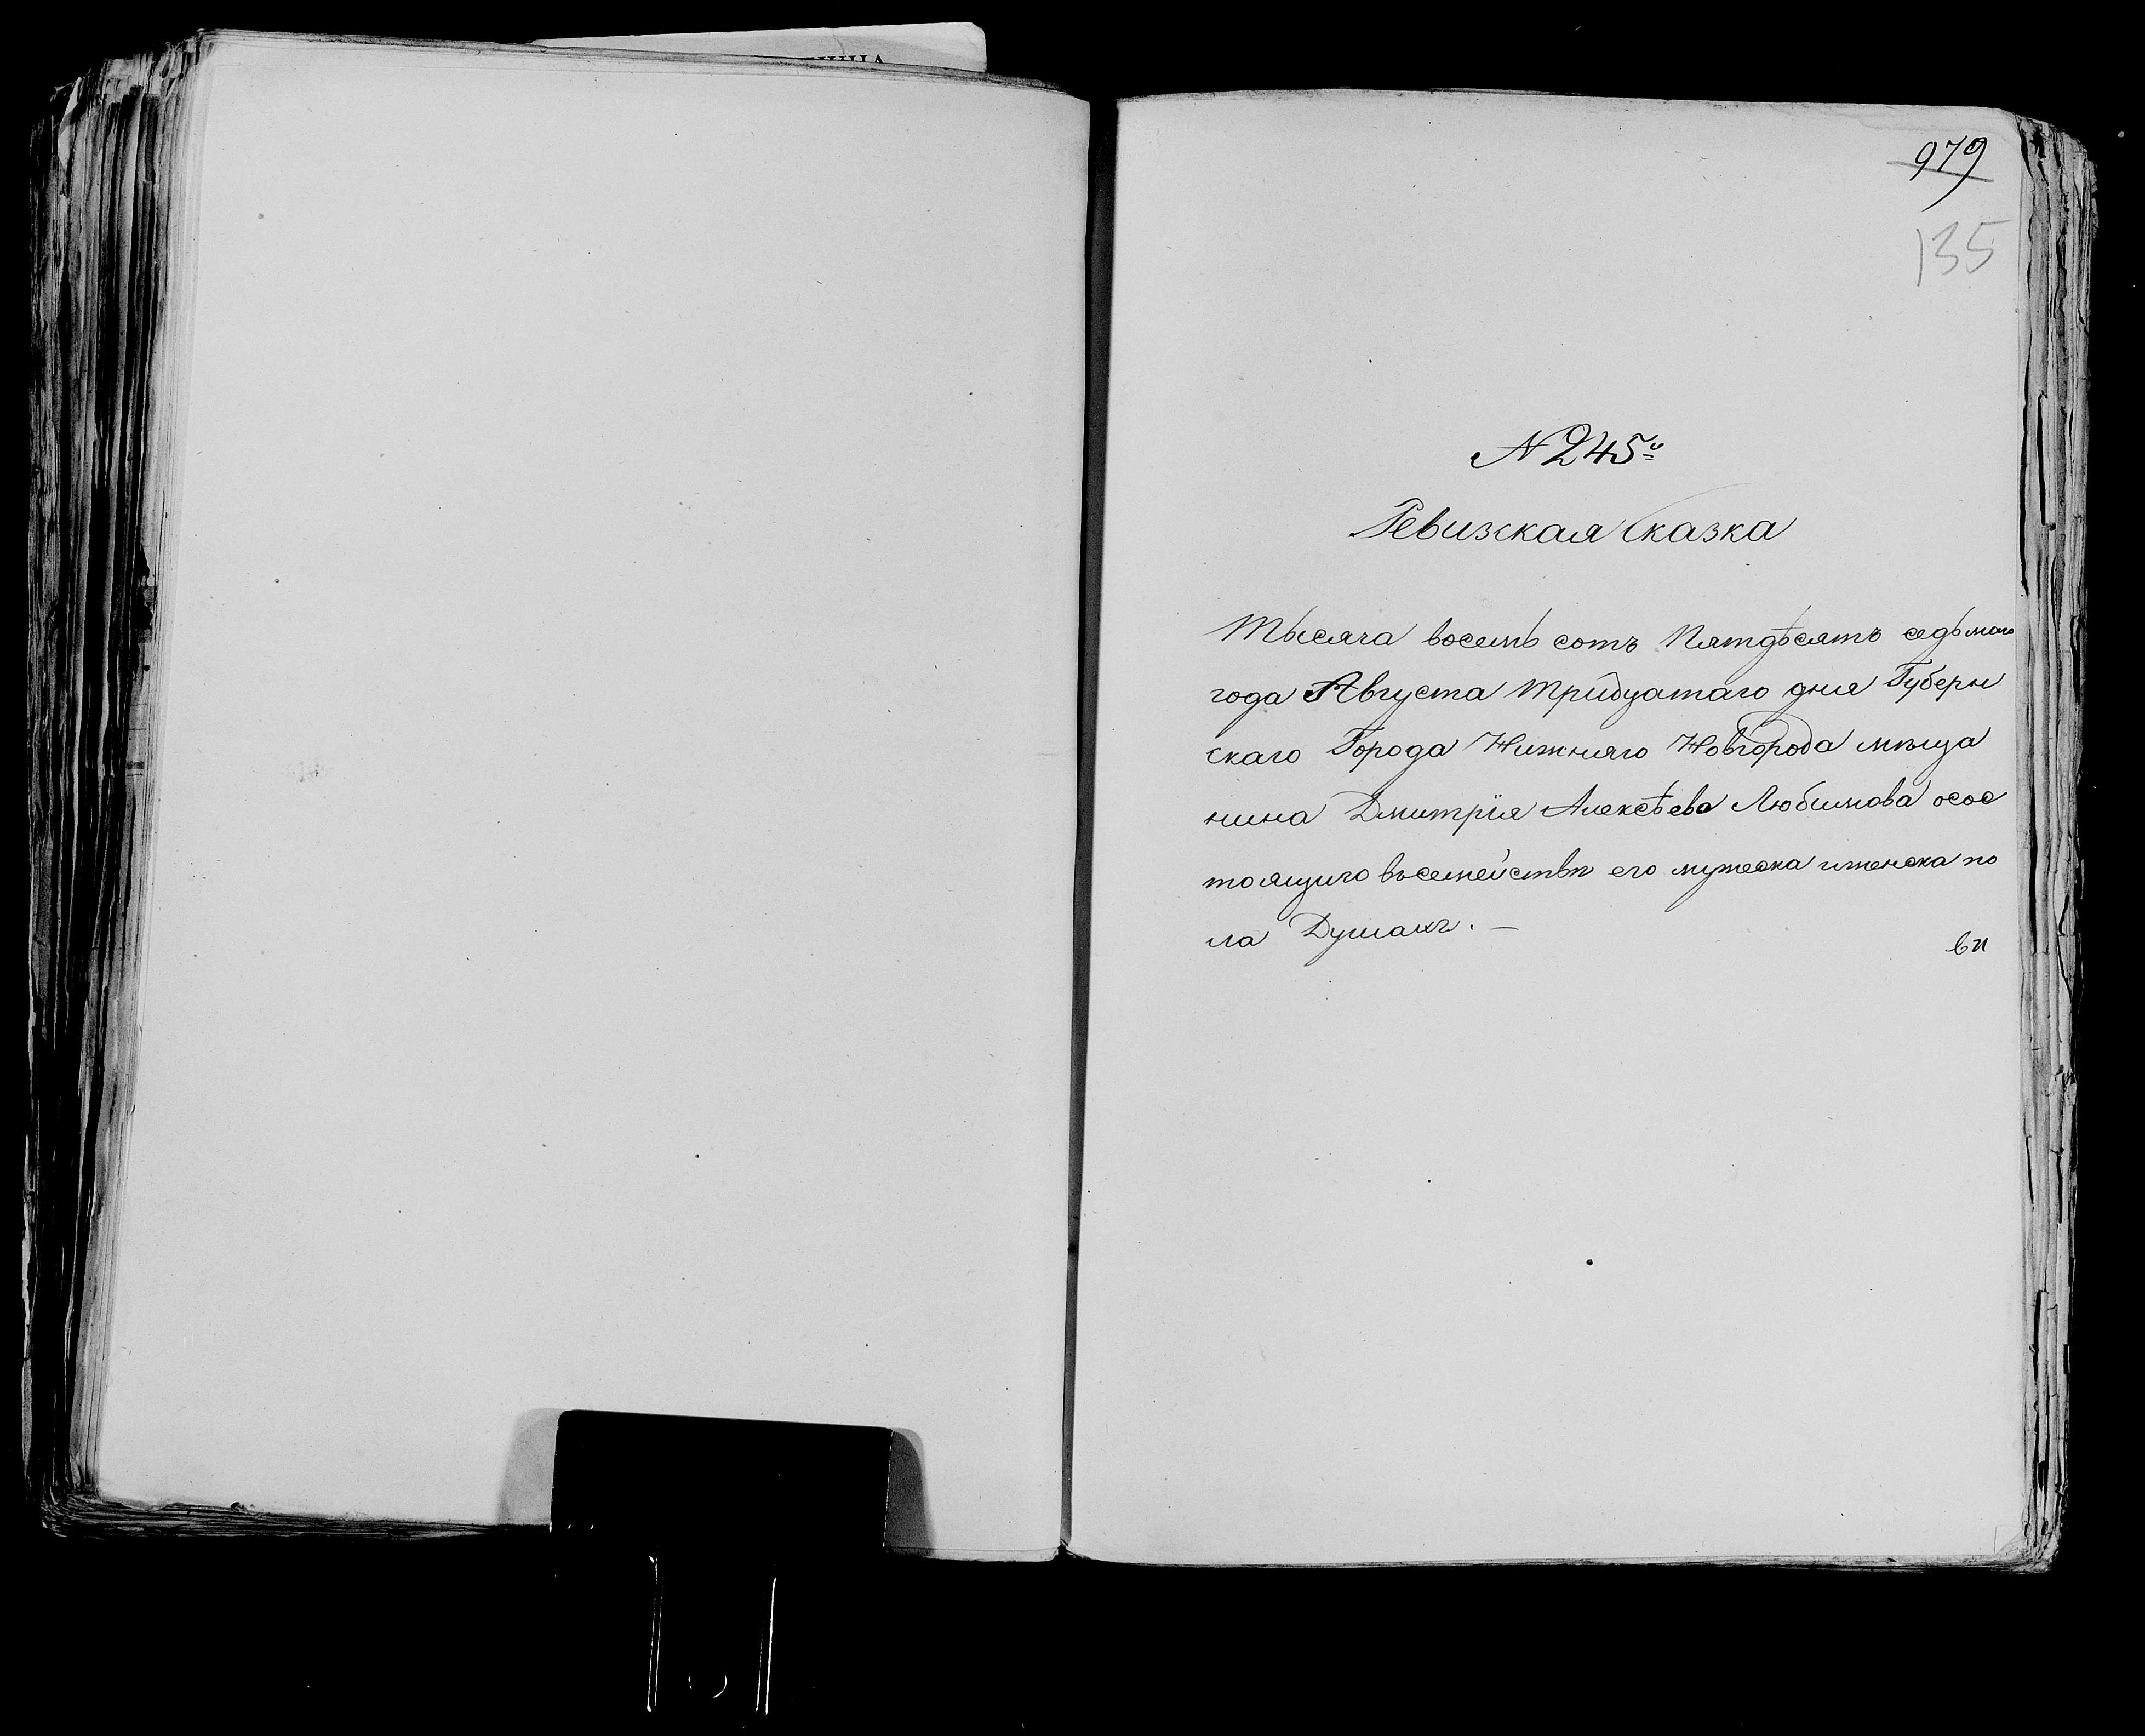 979
135
N 245й
Ревизская Сказка
Тысяча восемь сотъ Пятдѣсятъ седьмаго
года Августа тридцатаго дня Губерн
скаго Города Нижняго Новгорода мѣща
нина Дмитрiя Алексѣева Любимова осос
тоящиго въсемействѣ его мужеска иженска по
ла Душахъ. —